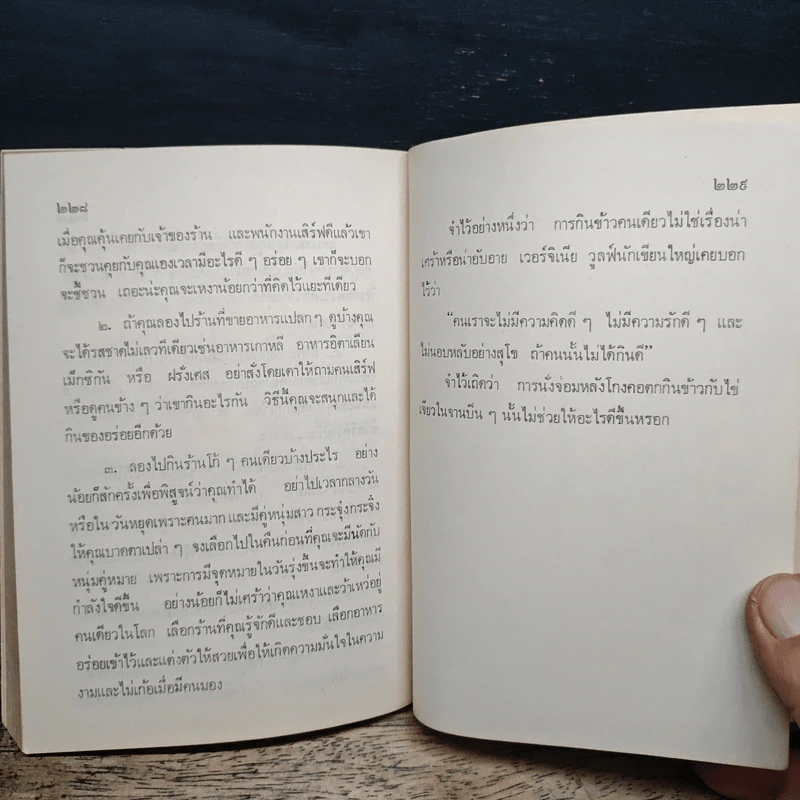 ๒๒๘
เมื่อคุณคุ้นเคยกับเจ้าของร้าน และพนักงานเสิร์ฟดีแล้วเขา
ก็จะชวนคุยกับคุณเองเวลามีอะไรดี ๆ อร่อย ๆ เขาก็จะบอก
จะชี้ชวน เถอะน่ะคุณจะเหงาน้อยกว่าที่คิดไว้แยะทีเดียว
๒. ถ้าคุณลองไปร้านที่ขายอาหารแปลก ๆ ดูบ้างคุณ
จะได้รสชาดไม่เลวทีเดียวเช่นอาหารเกาหลี อาหารอิตาเลียน
เม็กซิกัน หรือ ฝรั่งเศส อย่าสั่งโดยเดาให้ถามคนเสิร์ฟ
หรือดูคนข้าง ๆ ว่าเขากินอะไรกัน วิธีนี้คุณจะสนุกและได้
กินของอร่อยอีกด้วย
๓. ลองไปกินร้านโก้ ๆ คนเดียวบ้างประไร อย่าง
น้อยก็สักครั้งเพื่อพิสูจน์ว่าคุณทำได้ อย่าไปเวลากลางวัน
หรือใน วันหยุดเพราะคนมาก และมีคู่หนุ่มสาว กระจุ๋งกระจิ๋ง
ให้คุณบาดตาเปล่า ๆ จงเลือกไปในคืนก่อนที่คุณจะมีนัดกับ
หนุ่มคู่หมาย เพราะการมีจุดหมายในวันรุ่งขึ้นจะทำให้คุณมี
กำลังใจดีขึ้น อย่างน้อยก็ไม่เศร้าว่าคุณเหงาและว้าเหว่อยู่
คนเดียวในโลก เลือกร้านที่คุณรู้จักดีและชอบ เลือกอาหาร
อร่อยเข้าไว้และแต่งตัวให้สวยเพื่อให้เกิดความมั่นใจในความ
งามและไม่เก้อเมื่อมีคนมอง
๒๒๙
จำไว้อย่างหนึ่งว่า การกินข้าวคนเดียวไม่ใช่เรื่องน่า
เศร้าหรือน่าอับอาย เวอร์จิเนีย วูลฟ์นักเขียนใหญ่เคยบอก
ไว้ว่า
“คนเราจะไม่มีความคิดดี ๆ ไม่มีความรักดี ๆ และ
ไม่นอนหลับอย่างสุโข ถ้าคนนั้นไม่ได้กินดี”
จำไว้เถิดว่า การนั่งจ่อมหลังโกงคอตกกินข้าวกับไข่
เจียวในจานบิ่น ๆ นั้นไม่ช่วยให้อะไรดีขึ้นหรอก